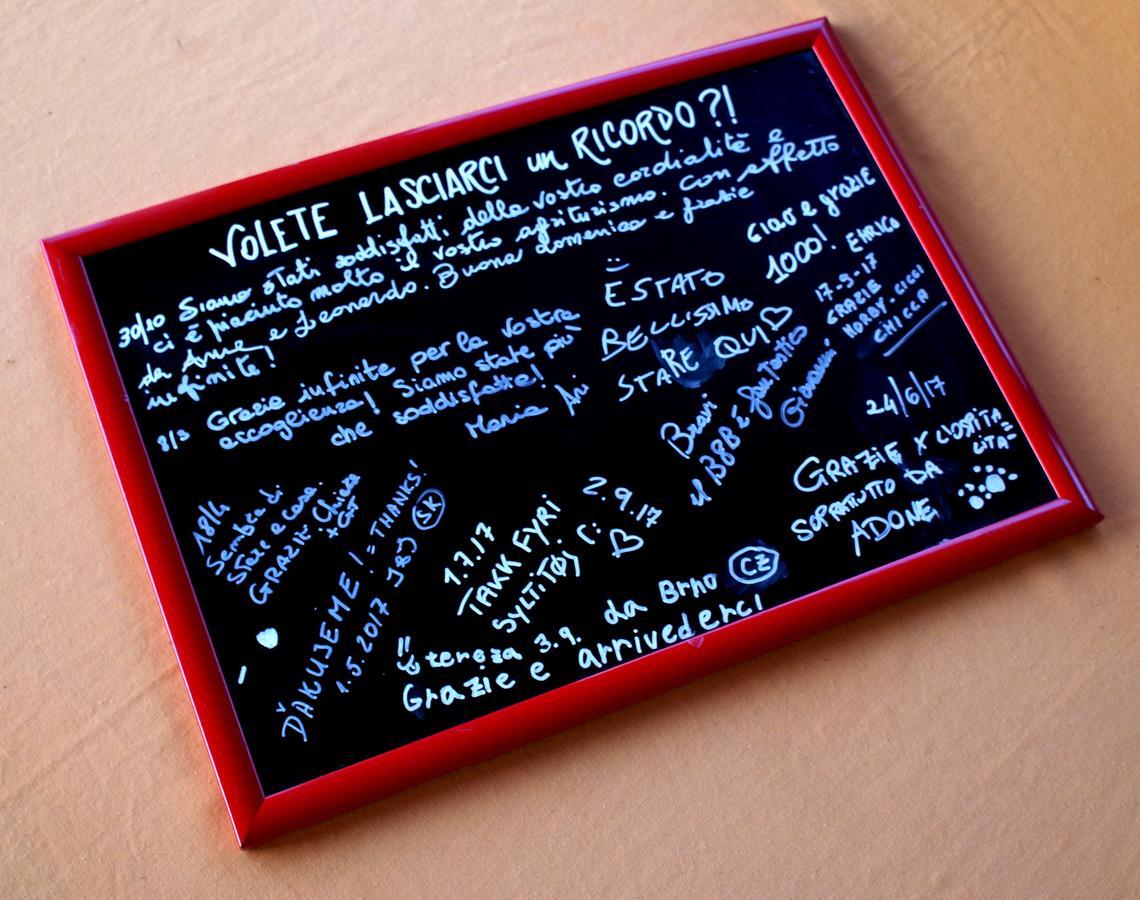 VOLETE LASCIARCI un RICORDO?!
30/10 Siamo stati soddisfatti della vostra cordialità e
ci è piaciuto molto il vostro agriturismo. Con affetto
da Anna e Leonardo. Buona domenica e grazie
infinite!
Ciao e grazie
1000! ENRICO
È STATO
BELLISSIMO
STARE QUI♡
17-9-17
GRAZIE
NORBY-GIGGI
CHICCA
8/3 Grazie infinite per la vostra
accoglienza! Siamo state più
che soddisfatte!
Maria Ari
Bravi
il B&B è fantastico
Giovanni
24/6/17
GRAZIE X L'OSPITA
LITA=
SOPRATUTTO DA
ADONE
18/4
Sembra di
stare a casa.
GRAZIE Chiara
ĎAKUJEME! = THANKS!
1.5.2017 J&J SK
1.7.17
TAKK FYRI
2.9.17
♡
tereza 3.9. da Brno CZ
Grazie e arrivederci